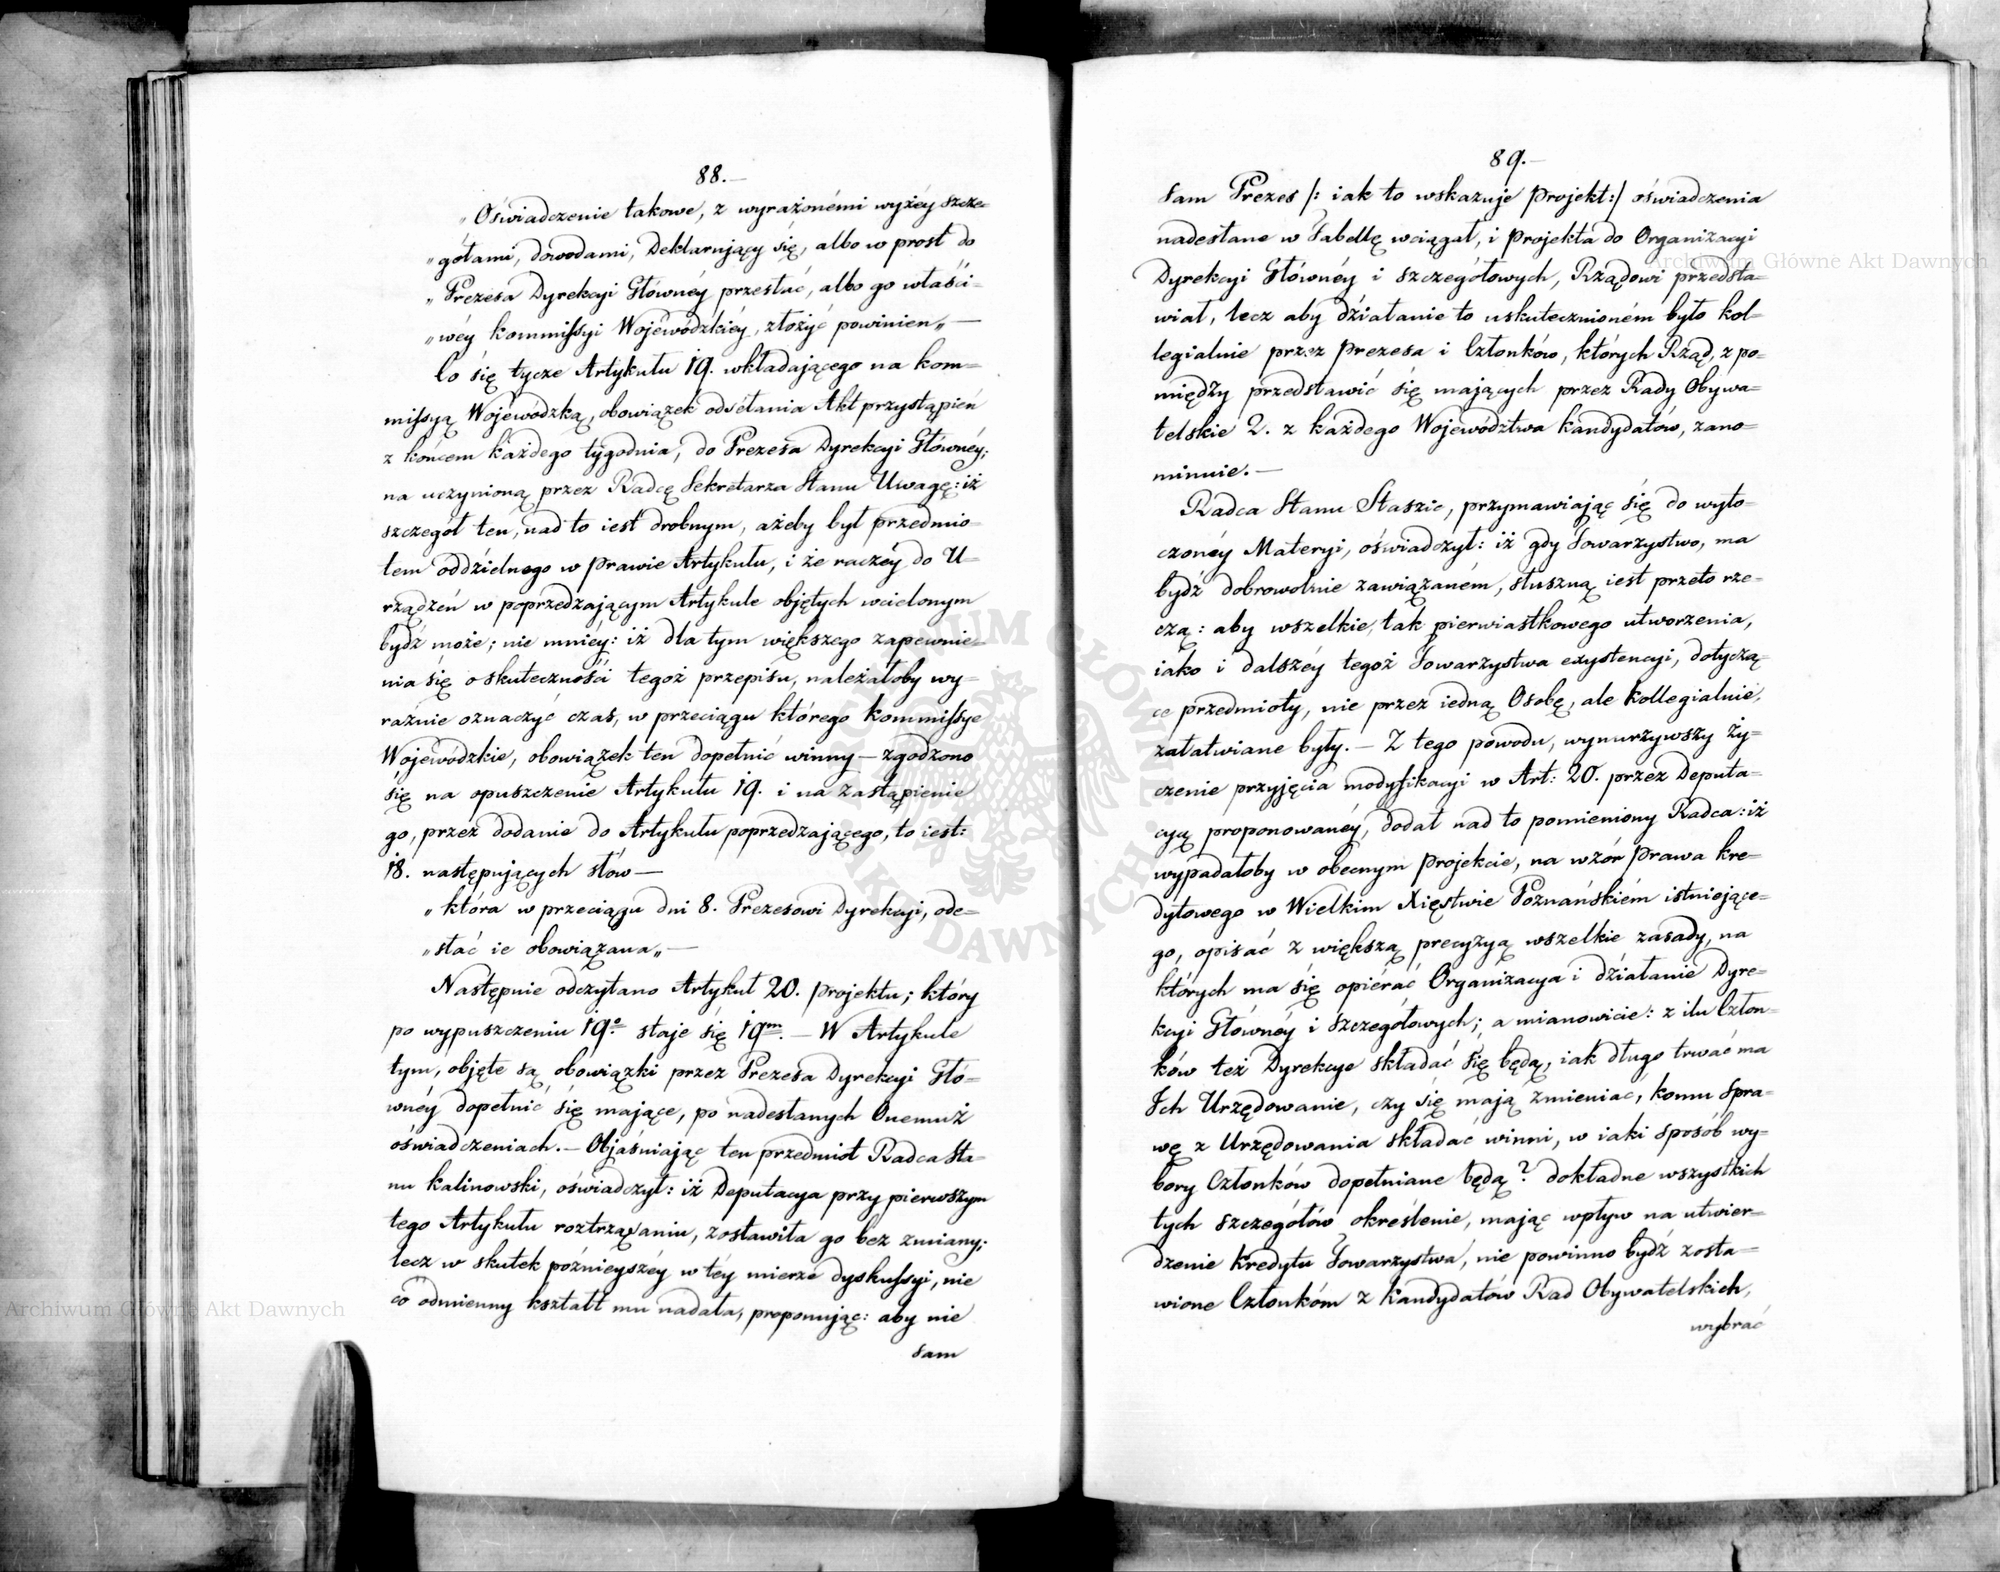 88.—
„Oświadczenie takowe, z wyrażonémi wyżéy szcze=
„gółami, dowodami, Deklarujący się, albo w prost do
„Prezesa Dyrekcyi Główney przesłać, albo go właści-
„wéy kommissyi Wojewódzkiéy, złożyć powinien„—
Co się tycze Artykułu 19. wkładającego na kom=
missyą Wojewódzką, obowiązek odsełania Akt przystąpień
z końcem każdego tygodnia, do Prezesa Dyrekcyi Główney;
na uczynioną przez Radcę Sekretarza Stanu Uwagę: iż
szczegół ten, nad to iest drobnym, ażeby był przedmio-
tem oddzielnego w prawie Artykułu, i że raczéy do U-
rządzeń w poprzedzającym Artykule objętych wcielonym
bydź może; nie mniéy: iż dla tym większego zapewnie=
nia się o skuteczności tegoż przepisu, należałoby wy-
raźnie oznaczyć czas, w przeciągu którego kommissye
Wojewódzkie, obowiązek ten dopełnić winny — zgodzono
się na opuszczenie Artykułu 19. i na zastąpienie
go, przez dodanie do Artykułu poprzedzającego, to iest:
18. następujących słów—
„która w przeciągu dni 8. Prezesowi Dyrekcyi, ode-
„słać ie obowiązana„—
Następnie odczytano Artykuł 20. projektu; który
po wypuszczeniu 19o staje się 19m. — W Artykule
tym, objęte są obowiązki przez Prezesa Dyrekcyi Głó-
wnéy dopełnić się mające, po nadesłanych Onemuż
oświadczeniach. — Objaśniając ten przedmiot Radca Sta-
nu Kalinowski, oświadczył: iż Deputacya przy pierwszym
tego Artykułu roztrząsaniu, zostawiła go bez zmiany;
lecz w skutek późnieyszéy w téy mierze dyskussyi, nie
co odmienny kształt mu nadała, proponując: aby nie
sam
89.—
sam Prezes /: iak to wskazuje projekt:/ oświadczenia
nadesłane w Tabellę wciągał, i projekta do Organizacyi
Dyrekcyi Główney i szczegółowych, Rządowi przedsta-
wiał, lecz aby działanie to uskutecznioném było kol-
legialnie przez Prezesa i Członków, których Rząd, z po-
między przedstawić się mających przez Rady Obywa-
telskie 2. z każdego Województwa kandydatów, zano-
minuie.—
Radca Stanu Staszic, przymawiając się do wyto-
czonéy Materyi, oświadczył: iż gdy Towarzystwo, ma
bydź dobrowolnie zawiązaném, słuszną iest przeto rze-
czą: aby wszelkie, tak pierwiastkowego utworzenia,
iako i dalszéy tegoż Towarzystwa exystencyi, dotyczą-
ce przedmioty, nie przez iedną Osobę, ale kollegialnie,
załatwiane były. — Z tego powodu, wynurzywszy ży-
czenie przyjęcia modyfikacyi w Art: 20. przez Deputa-
cyą proponowanéy, dodał nad to pomieniony Radca: iż
wypadałoby w obecnym projekcie, na wzór prawa kre-
dytowego w Wielkim Xięstwie Poznańskiém istniejące-
go, opisać z większą precyzyą wszelkie zasady, na
których ma się opiérać Organizacya i działanie Dyre-
kcyi Główney i szczegółowych; a mianowicie: z ilu Człon-
ków też Dyrekcye składać się będą, iak długo trwać ma
Ich Urzędowanie, czy się mają zmieniać, komu spra-
wę z Urzędowania składać winni, w iaki sposób wy-
bory Członków dopełniane będą? dokładne wszystkich
tych szczegółów określenie, mając wpływ na utwier-
dzenie kredytu Towarzystwa, nie powinno bydź zosta-
wione Członkóm z kandydatów Rad Obywatelskich,
wybrać
Archiwum Główne Akt Dawnych
Archiwum Główne Akt Dawnych
ARCHIWUM GŁÓWNE AKT DAWNYCH